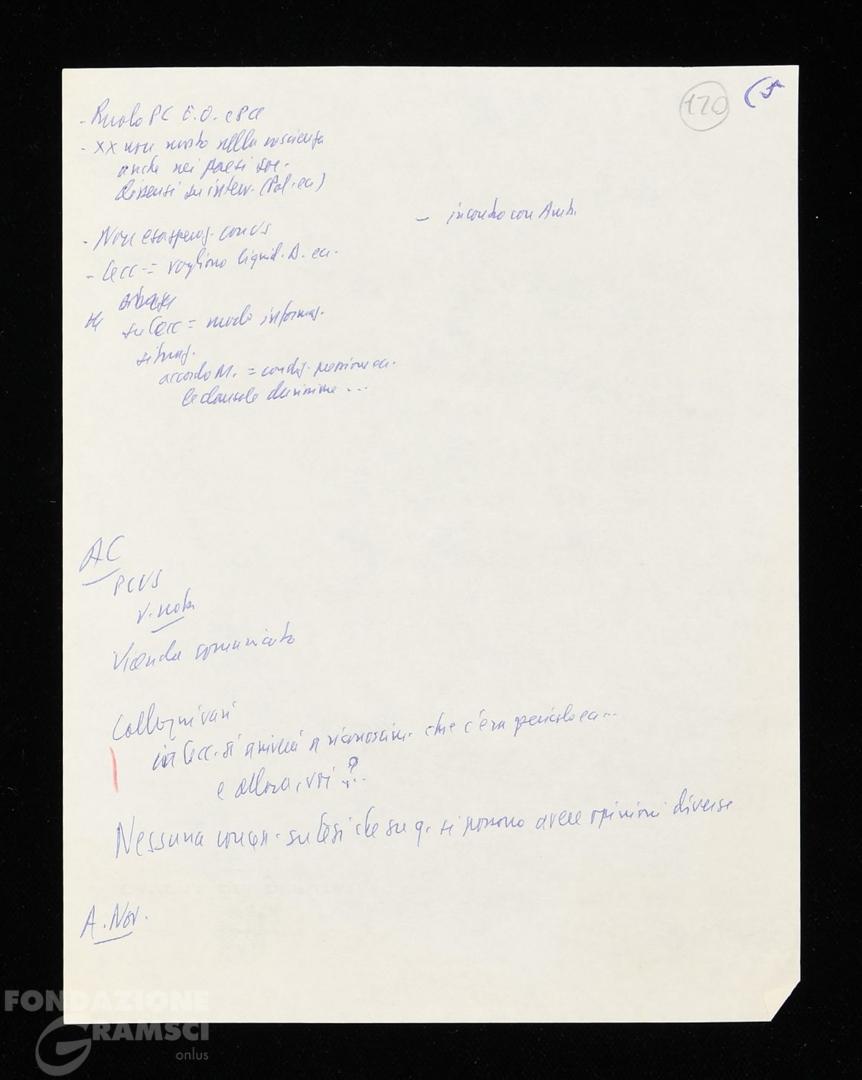 120
- Ruolo PC E.O. e PCI
- XX non nella coscienza
anche nei paesi soc.
dissensi su interv. (Pol. ec)
- incontro con Amb.
- Non esasperaz. con US
- Cecc = vogliono liquid. D. ec.
su Cecc = modo informaz.
situaz.
accordo M. = condiz. ec.
le clausole durissime ...
AC
PCUS
v. nota
Vicenda comunicato
Colloqui vari
in Cecc. si arriverà a riconoscim. che c'era pericolo ec...
e allora, voi ?...
Nessuna su tesi che su q. si possono avere opinioni diverse
A. Nov.
FONDAZIONE
GRAMSCI
onlus